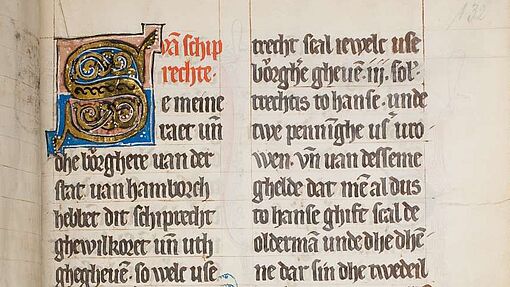 vā schip
rechte·
De meine
raet uñ
dhe bôrghere uan der
stat uan hamborch
hebbet dit schiprecht
ghewilkoret uñ uth
ghegheuē· so welc use
trecht scal iewelc use
bôrghe gheuē· iij· sol·
trechtis to hanse· unde
twe penninghe us uro
wen· vñ uan desseme
ghelde dat mē al dus
to hanse ghift scal de
olderman unde dhe dhē
ne dar sin dhe twedeil